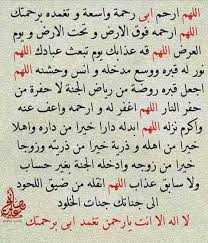 اللهم ارحم ابى رحمة واسعة و تغمده برحمتك
اللهم ارحمه فوق الارض و تحت الارض و يوم
العرض اللهم قه عذابك يوم تبعث عبادك اللهم
نور له قبره ووسع مدخله و انس وحشته اللهم
اجعل قبره روضة من رياض الجنة لا حفرة من
حفر النار اللهم اغفر له و ارحمه واعف عنه
واكرم نزله اللهم ابدله دارا خيرا من داره واهلا
خيرا من اهله و ذرية خيرا من ذريته وزوجا
خيرا من زوجه وادخله الجنة بغير حساب
ولا سابق عذاب اللهم انقله من ضيق اللحود
الى جناتك جنات الخلود
لا اله الا انت يارحمن تغمد ابى برحمتك